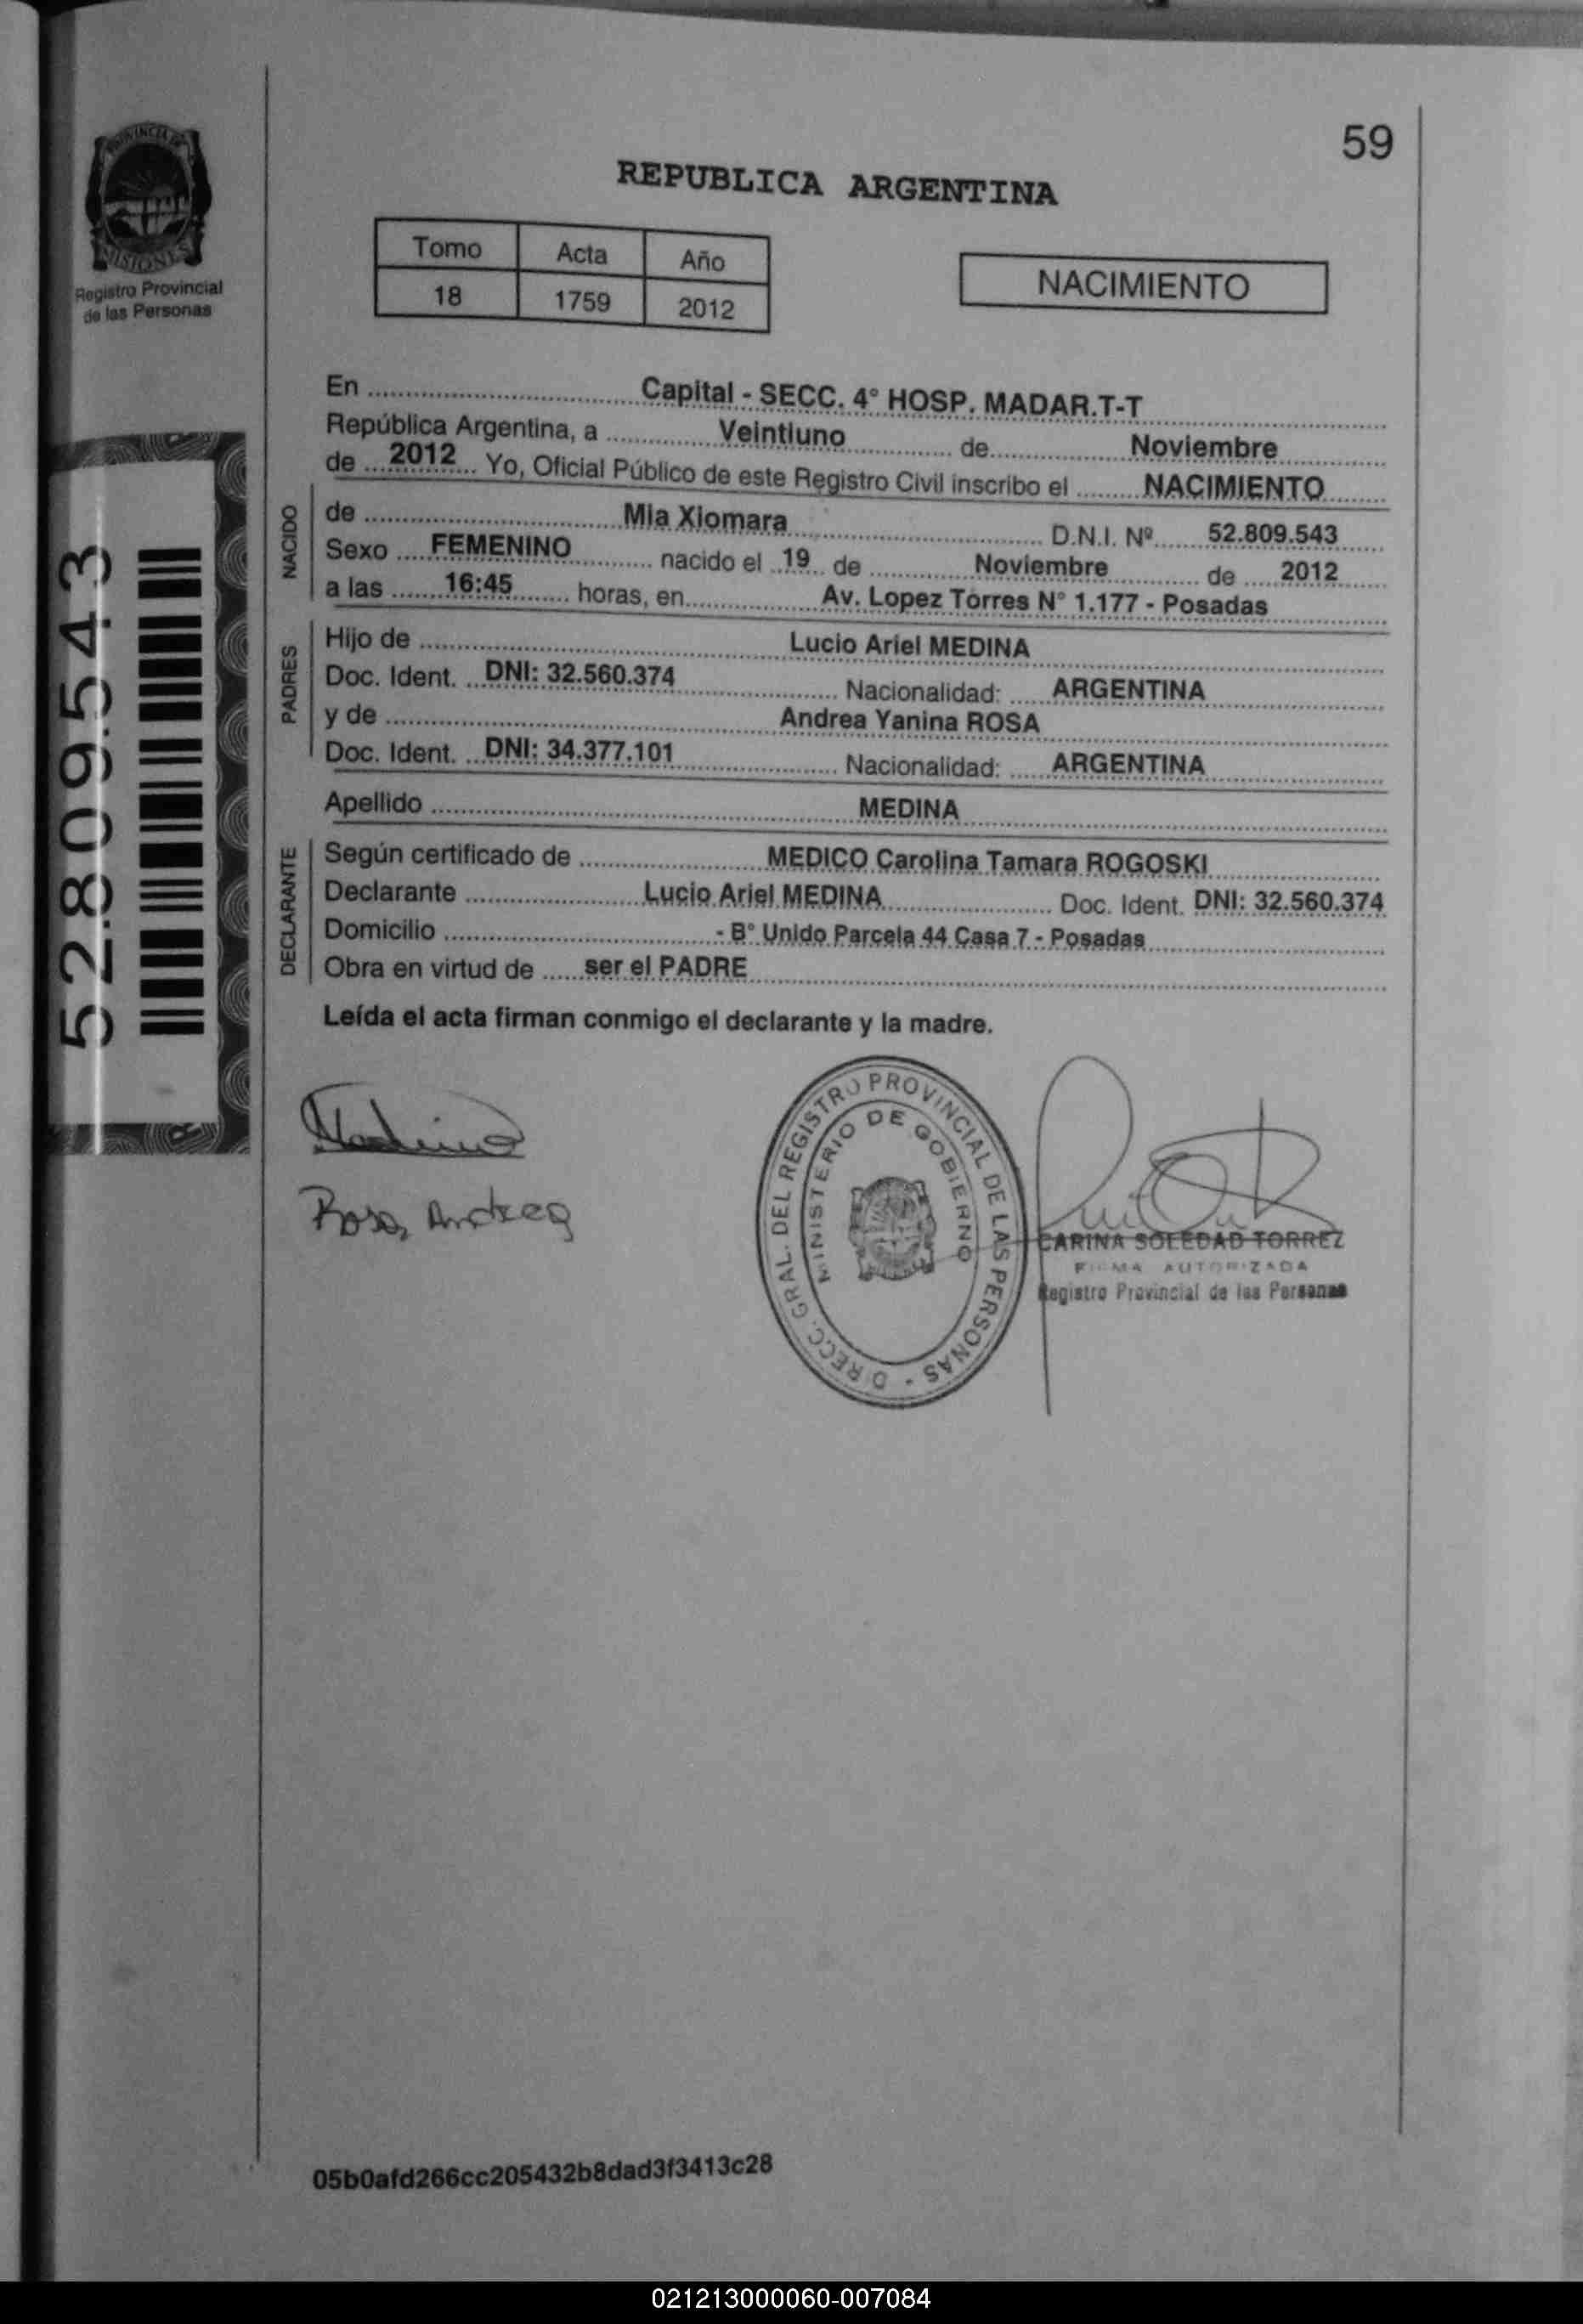 59
PROVINCIA DE
MISIONES
Registro Provincial
de las Personas
REPUBLICA ARGENTINA
Tomo Acta Año
18 1759 2012
NACIMIENTO
En Capital - SECC. 4° HOSP. MADAR.T-T
República Argentina, a Veintiuno de Noviembre
de 2012 Yo, Oficial Público de este Registro Civil inscribo el NACIMIENTO
NACIDO
de Mia Xiomara D.N.I. Nº 52.809.543
Sexo FEMENINO nacido el 19 de Noviembre de 2012
a las 16:45 horas, en Av. Lopez Torres N° 1.177 - Posadas
PADRES
Hijo de Lucio Ariel MEDINA
Doc. Ident. DNI: 32.560.374 Nacionalidad: ARGENTINA
y de Andrea Yanina ROSA
Doc. Ident. DNI: 34.377.101 Nacionalidad: ARGENTINA
Apellido MEDINA
DECLARANTE
Según certificado de MEDICO Carolina Tamara ROGOSKI
Declarante Lucio Ariel MEDINA Doc. Ident. DNI: 32.560.374
Domicilio - B° Unido Parcela 44 Casa 7 - Posadas
Obra en virtud de ser el PADRE
Leída el acta firman conmigo el declarante y la madre.
52.809.543
Medina
Rosa, Andrea
DIRECC. GRAL. DEL REGISTRO PROVINCIAL DE LAS PERSONAS -
MINISTERIO DE GOBIERNO
CARINA SOLEDAD TORREZ
FIRMA AUTORIZADA
Registro Provincial de las Personas
05b0afd266cc205432b8dad3f3413c28
021213000060-007084